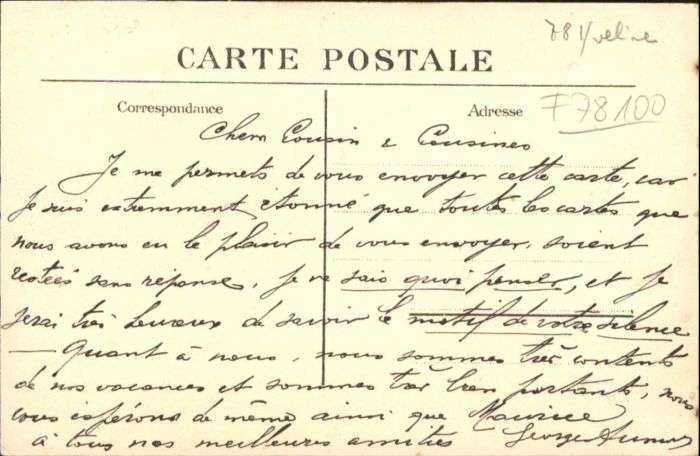 78 Yveline
CARTE POSTALE
Correspondance
Adresse
F78100
Chers Cousin & Cousines
Je me permets de vous envoyer cette carte, car
je suis extremment étonné que toutes les cartes que
nous avons eu le plaisir de vous envoyer, soient
restées sans réponse, je ne sais quoi penser, et je
serai très heureux de savoir le motif de votre silence
— Quant à nous, nous sommes très contents
de nos vacances et sommes très bien portants, nous
vous espérons de même ainsi que Maurice
à tous nos meilleures amitiés Georges